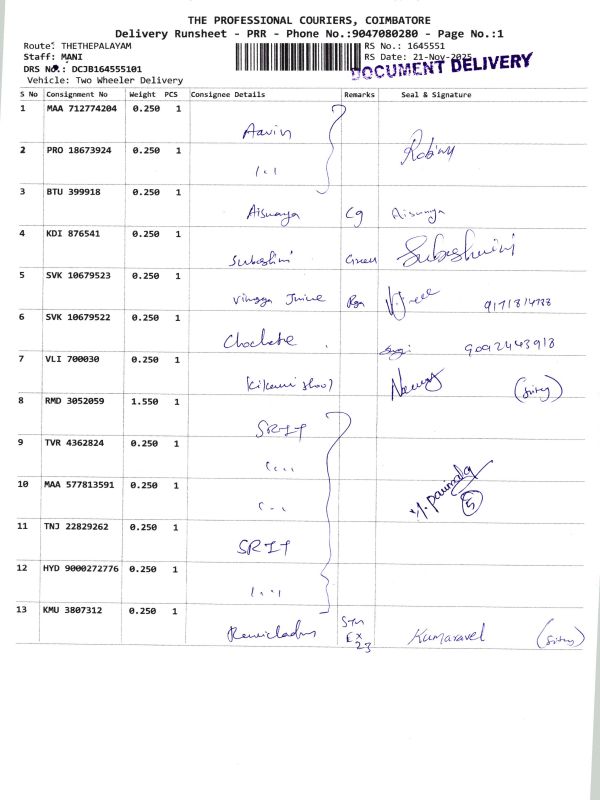 THE PROFESSIONAL COURIERS, COIMBATORE
Delivery Runsheet - PRR - Phone No.:9047080280 - Page No.:1
Route: THETHEPALAYAM RS No.: 1645551
Staff: MANI RS Date: 21-Nov-2025
DRS No.: DCJB164555101 DOCUMENT DELIVERY
Vehicle: Two Wheeler Delivery
S No Consignment No Weight PCS Consignee Details Remarks Seal & Signature
1 MAA 712774204 0.250 1
Aavin
2 PRO 18673924 0.250 1
3 BTU 399918 0.250 1
Aiswarya Cg Aiswarya
4 KDI 876541 0.250 1
Subashini Green Subashini
5 SVK 10679523 0.250 1
6 SVK 10679522 0.250 1
Choclate 9092443918
7 VLI 700030 0.250 1
8 RMD 3052059 1.550 1
SRIT
9 TVR 4362824 0.250 1
10 MAA 577813591 0.250 1
5
11 TNJ 22829262 0.250 1
SRIT
12 HYD 9000272776 0.250 1
13 KMU 3807312 0.250 1
Ex 23 Kumaravel